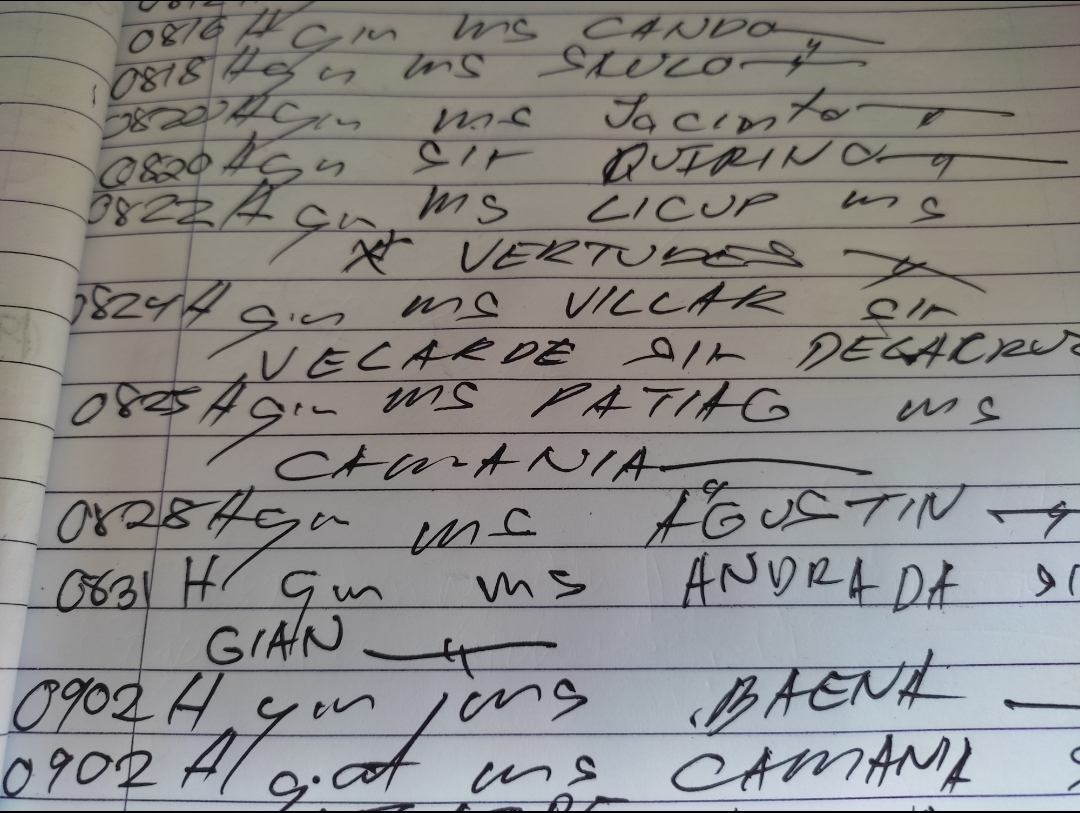 0816 H gin ms CANDO
0818 H gin ms SAULO
0820 H gin ms Jacinto
0820 H gin sir QUIRINO
0822 H gin ms LICUP ms
VERTUDES
0824 H gin ms VILLAR sir
VELARDE sir DELACRUZ
0825 H gin ms PATIAG ms
CAMANIA
0828 H gin ms AGUSTIN
0831 H gin ms ANDRADA
GIAN
0902 H gin ms BAENA
0902 H g.out ms CAMANIA